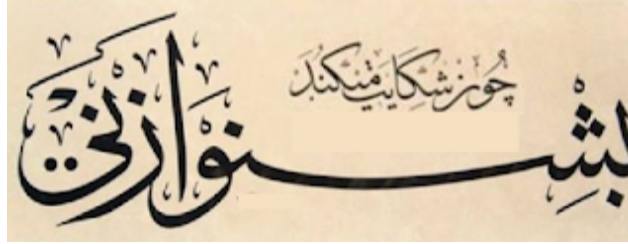 بشنو از نی
چون شکایت میکند